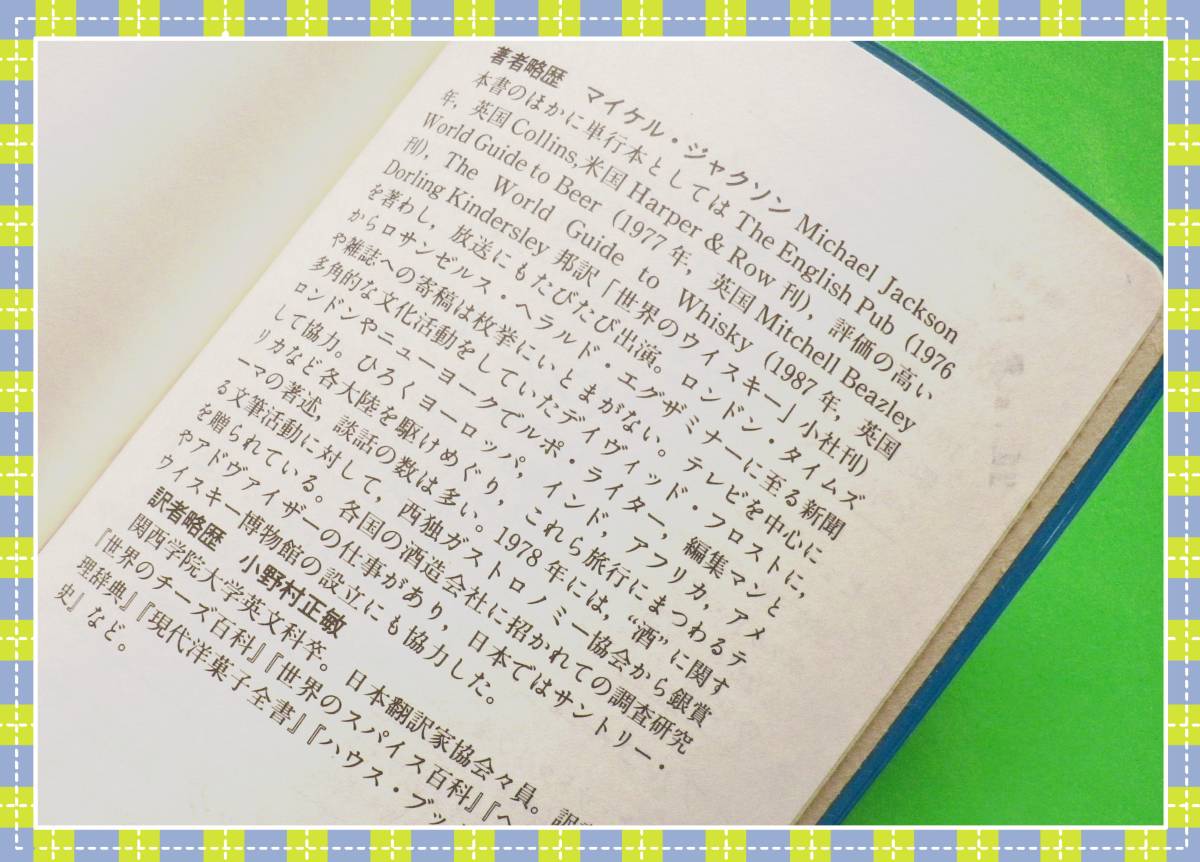 著者略歴 マイケル・ジャクソン Michael Jackson
本書のほかに単行本としては The English Pub (1976
年, 英国 Collins, 米国 Harper & Row 刊), 評価の高い
World Guide to Beer (1977 年, 英国 Mitchell Beazley
刊), The World Guide to Whisky (1987 年, 英国
Dorling Kindersley 邦訳「世界のウイスキー」小社刊)
を著わし, 放送にもたびたび出演。ロンドン・タイムズ
からロサンゼルス・ヘラルド・エグザミナーに至る新聞
や雑誌への寄稿は枚挙にいとまがない。テレビを中心に
多角的な文化活動をしていたデイヴィッド・フロストに,
ロンドンやニューヨークでルポ・ライター, 編集マンと
して協力。ひろくヨーロッパ, インド, アフリカ, アメ
リカなど各大陸を駆けめぐり, これら旅行にまつわるテ
ーマの著述, 談話の数は多い。1978 年には, “酒” に関す
る文筆活動に対して, 西独ガストロノミー協会から銀賞
を贈られている。各国の酒造会社に招かれての調査研究
やアドヴァイザーの仕事があり, 日本ではサントリー・
ウイスキー博物館の設立にも協力した。
訳者略歴 小野村正敏
関西学院大学英文科卒。日本翻訳家協会々員。訳
『世界のチーズ百科』『世界のスパイス百科』『
理辞典』『現代洋菓子全書』『ハウス・ブッ
史』など。